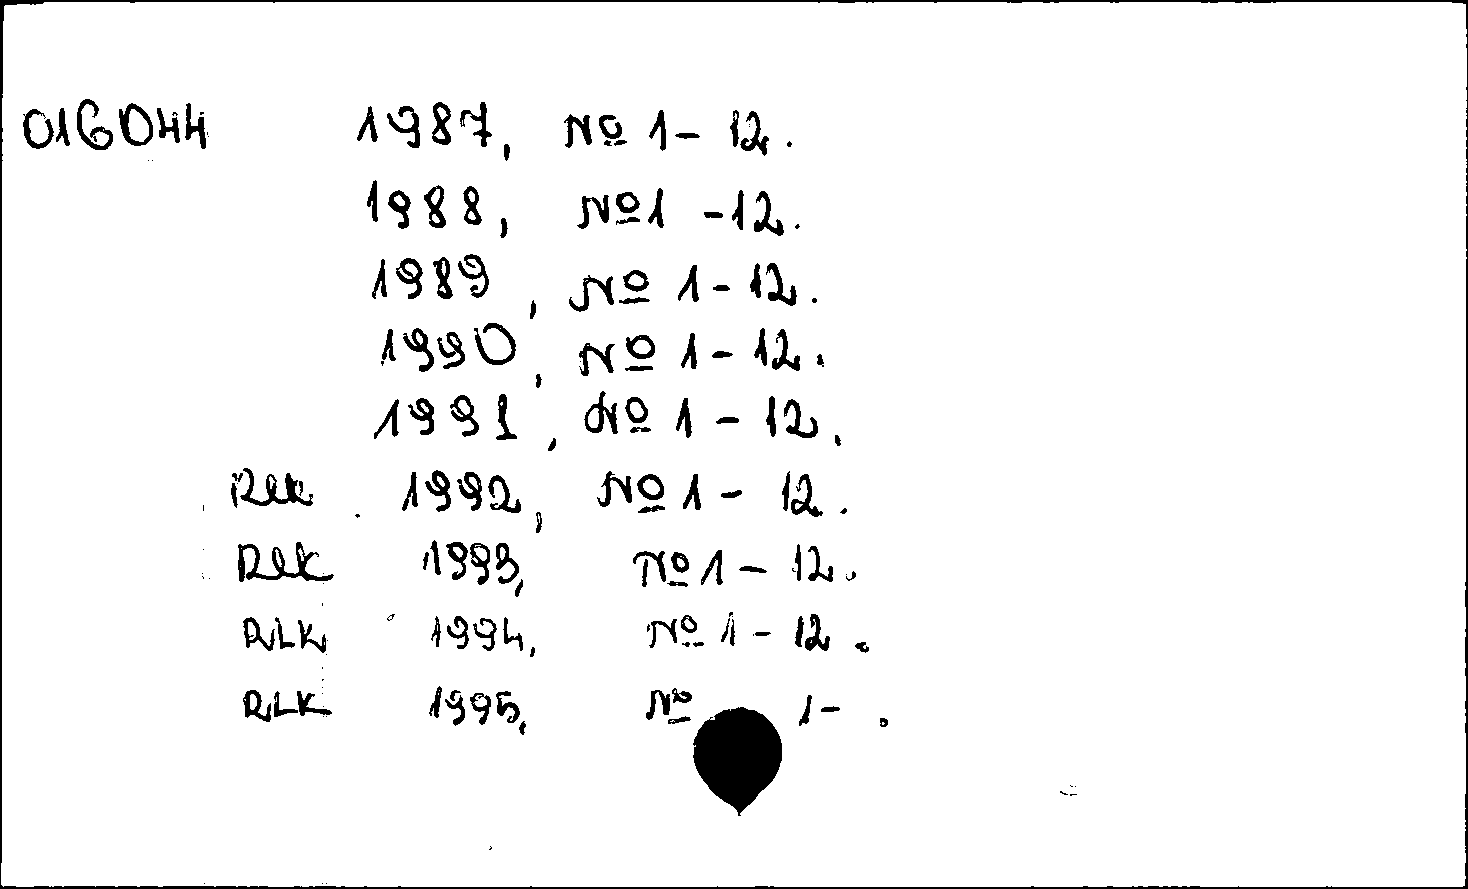 016044 1987, № 1 - 12.
1988, № 1 - 12.
1989, № 1 - 12.
1990, № 1 - 12.
1991, № 1 - 12.
RLK 1992, № 1 - 12.
RLK 1993, № 1 - 12.
RLK 1994, № 1 - 12.
RLK 1995, № 1 - .